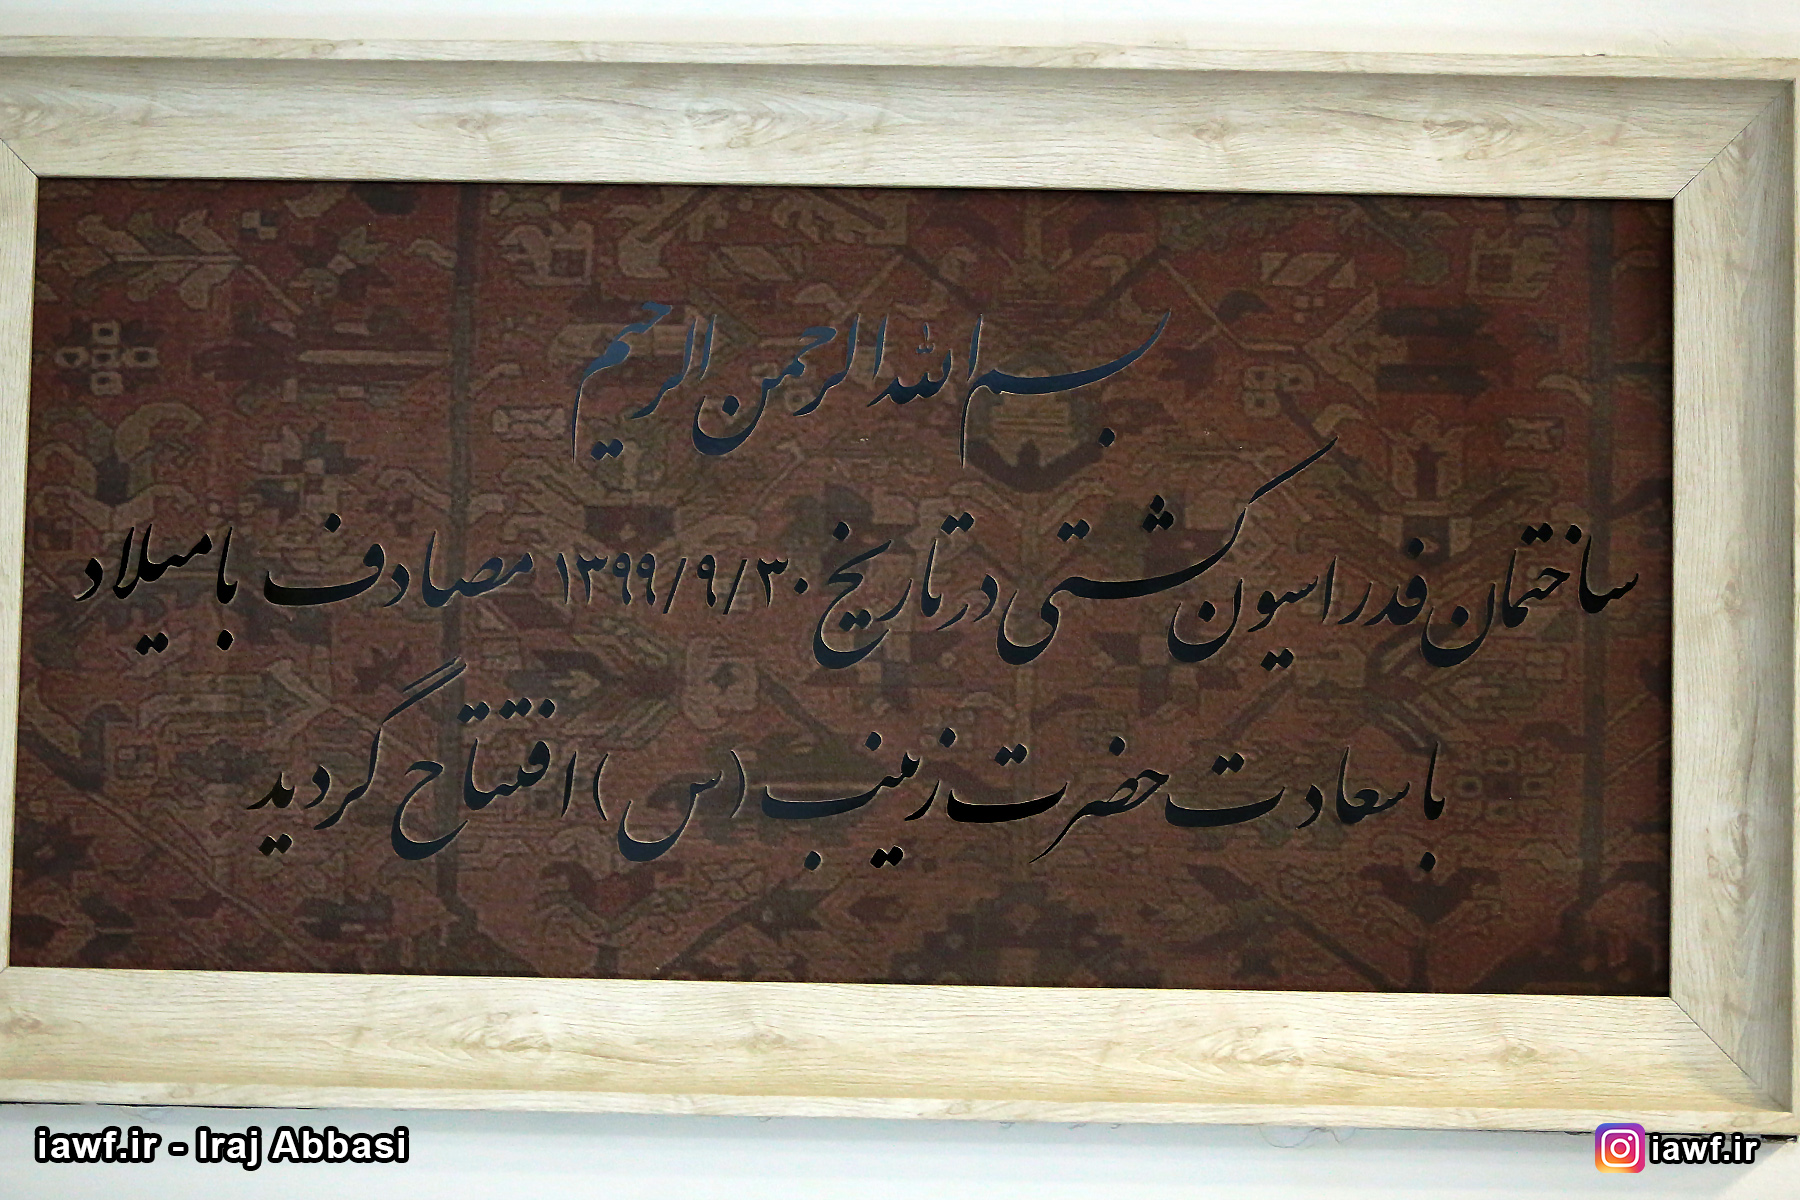 بسم الله الرحمن الرحیم
ساختمان فدراسیون کشتی در تاریخ ۱۳۹۹/۹/۳۰ مصادف با میلاد
با سعادت حضرت زینب (س) افتتاح گردید
iawf.ir - Iraj Abbasi
iawf.ir